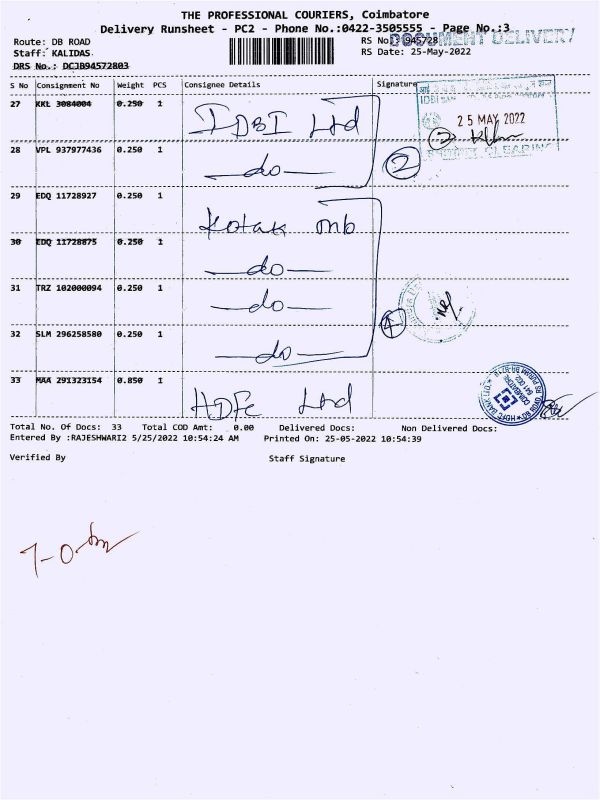 THE PROFESSIONAL COURIERS, Coimbatore
Delivery Runsheet - PC2 - Phone No.:0422-3505555 - Page No.:3
Route: DB ROAD
RS No.: 945728
DOCUMENT DELIVERY
Staff: KALIDAS
RS Date: 25-May-2022
DRS No.: DCJB94572803
S No Consignment No Weight PCS Consignee Details Signature
27 KKL 3084004 0.250 1 IDBI Ltd
25 MAY 2022
28 VPL 937977436 0.250 1 —do— 2
29 EDQ 11728927 0.250 1 Kotak mb
30 EDQ 11728875 0.250 1 —do—
31 TRZ 102000094 0.250 1 —do—
32 SLM 296258580 0.250 1 —do— 4
33 MAA 291323154 0.850 1 HDFC Ltd
Total No. Of Docs: 33 Total COD Amt: 0.00 Delivered Docs: Non Delivered Docs:
Entered By :RAJESHWARI2 5/25/2022 10:54:24 AM Printed On: 25-05-2022 10:54:39
Verified By Staff Signature